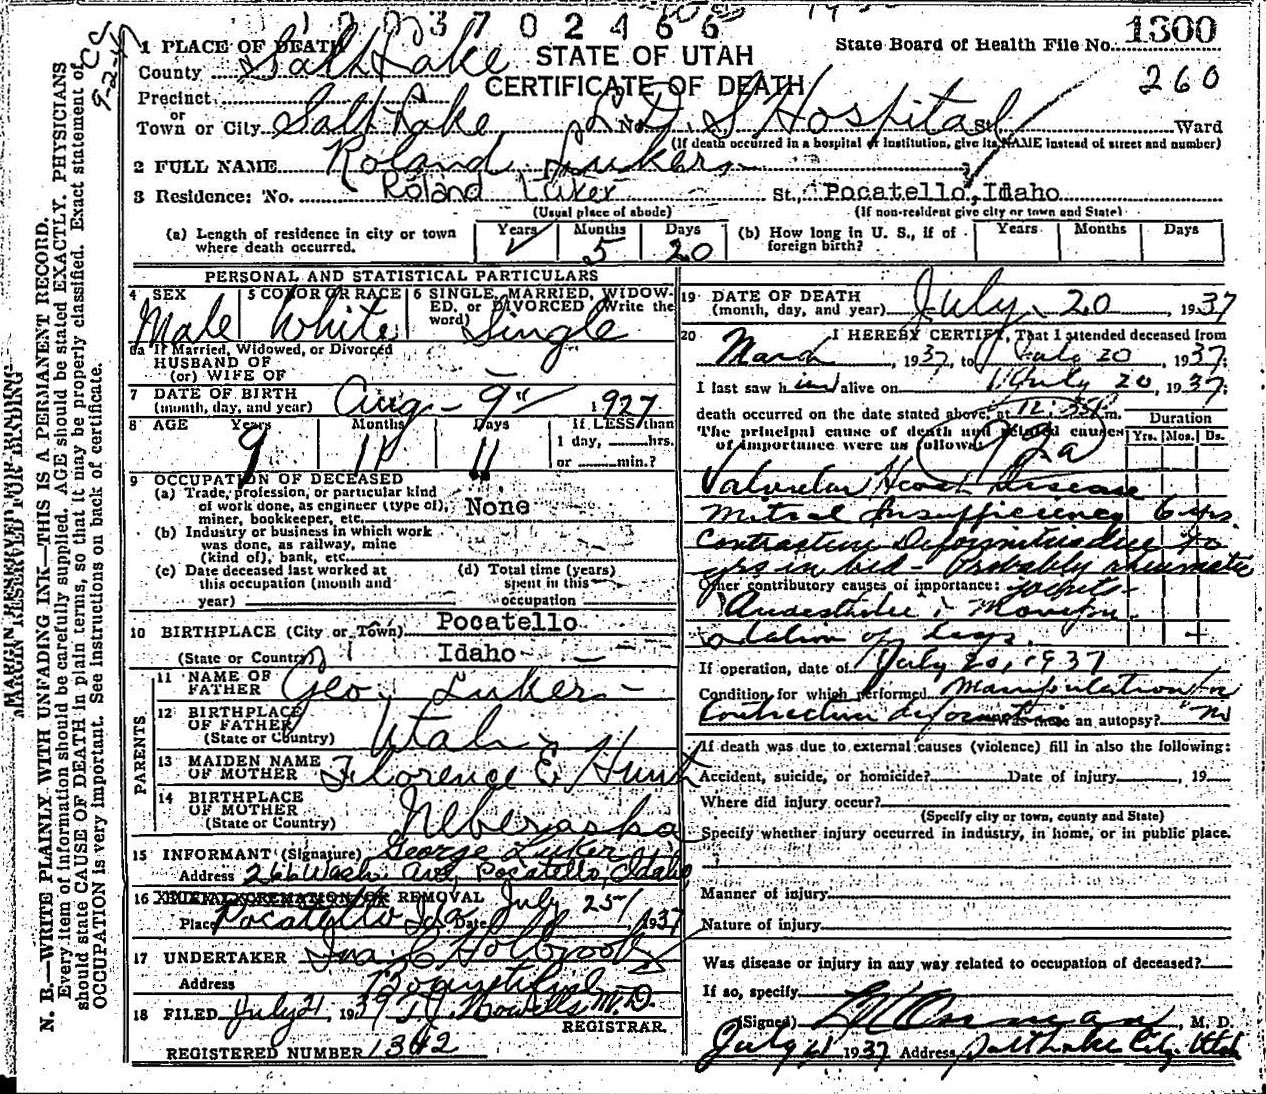 1 2 0 3 7 0 2 4 6 6
1300
1 PLACE OF DEATH
STATE OF UTAH
State Board of Health File No. 1300
County Salt Lake
CERTIFICATE OF DEATH
260
Precinct
or
Town or City Salt Lake No. L.D.S Hospital St. Ward
(If death occurred in a hospital or institution, give its NAME instead of street and number)
2 FULL NAME Roland Lukers
3 Residence: No. Roland Luker St., Pocatello, Idaho
(Usual place of abode) (If non-resident give city or town and State)
(a) Length of residence in city or town where death occurred. Years Months 5 Days 20 (b) How long in U. S., if of foreign birth? Years Months Days
PERSONAL AND STATISTICAL PARTICULARS
4 SEX Male 5 COLOR OR RACE White 6 SINGLE, MARRIED, WIDOWED, OR DIVORCED (Write the word) Single
6a If Married, Widowed, or Divorced
HUSBAND OF
(or) WIFE OF
7 DATE OF BIRTH (month, day, and year) Aug - 9 - 1927
8 AGE Years 9 Months 11 Days 11 If LESS than 1 day, hrs. or min.?
9 OCCUPATION OF DECEASED
(a) Trade, profession, or particular kind of work done, as engineer (type of), miner, bookkeeper, etc. None
(b) Industry or business in which work was done, as railway, mine (kind of), bank, etc.
(c) Date deceased last worked at this occupation (month and year)
(d) Total time (years) spent in this occupation
10 BIRTHPLACE (City or Town) Pocatello
(State or Country) Idaho
PARENTS
11 NAME OF FATHER Geo. Lukers
12 BIRTHPLACE OF FATHER (State or Country) Utah
13 MAIDEN NAME OF MOTHER Florence E Hunt
14 BIRTHPLACE OF MOTHER (State or Country) Nebraska
15 INFORMANT (Signature) George Luker
Address 266 Wash. Ave, Pocatello, Idaho
16 BURIAL, CREMATION, OR REMOVAL
Place Pocatello Ida Date July 25 1937
17 UNDERTAKER Ira C Holbrook
Address Bountiful
18 FILED July 21, 1937 T.J. Howells M.D.
REGISTRAR.
REGISTERED NUMBER 1342
19 DATE OF DEATH (month, day, and year) July 20, 1937
20 I HEREBY CERTIFY, That I attended deceased from
March, 1937, to July 20, 1937;
I last saw him alive on July 20, 1937;
death occurred on the date stated above, at 12: m.
The principal cause of death and related causes of importance were as follows: 92a
Duration
Yrs. Mos. Ds.
Valvular Heart Disease
Mitral Insufficiency 6 yrs.
Contracture Deformities due to
yrs in bed - Probably rheumatic
Other contributory causes of importance:
Anaesthetic &
of legs.
If operation, date of July 20, 1937
Condition for which performed Manipulation for
contraction deformities Was there an autopsy? No
If death was due to external causes (violence) fill in also the following:
Accident, suicide, or homicide? Date of injury , 19
Where did injury occur?
(Specify city or town, county and State)
Specify whether injury occurred in industry, in home, or in public place.
Manner of injury
Nature of injury
Was disease or injury in any way related to occupation of deceased?
If so, specify
(Signed) , M. D.
July 21 1937 Address Salt Lake City, Utah
MARGIN RESERVED FOR BINDING
N. B.—WRITE PLAINLY, WITH UNFADING INK—THIS IS A PERMANENT RECORD.
Every item of information should be carefully supplied. AGE should be stated EXACTLY. PHYSICIANS
should state CAUSE OF DEATH in plain terms, so that it may be properly classified. Exact statement of
OCCUPATION is very important. See instructions on back of certificate.